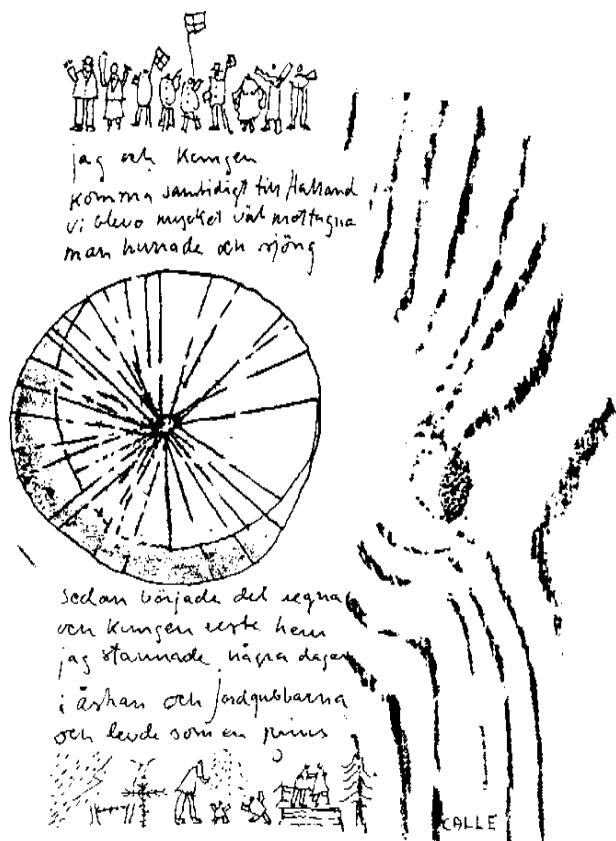 jag och Kungen
komma samtidigt till Halland
vi blevo mycket väl mottagna
man hurrade och sjöng
sedan började det regna
och Kungen reste hem
jag stannade några dagar
i åskan och jordgubbarna
och levde som en prins
CALLE